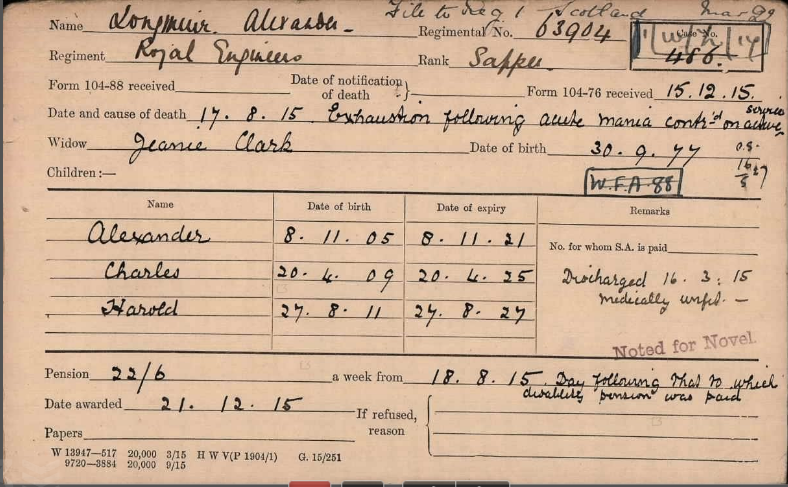 File to Reg 1 Scotland
Name Longmuir. Alexander. Regimental No. 63904
Case No.
486.
Regiment Royal Engineers Rank Sapper.
Form 104-88 received Date of notification of death } Form 104-76 received 15.12.15.
Date and cause of death 17. 8. 15. Exhaustion following acute mania contr'd on active service
Widow Jeanie Clark Date of birth 30. 9. 77
Children:—
W.F.A. 88
Name Date of birth Date of expiry Remarks
Alexander 8. 11. 05 8. 11. 21
No. for whom S.A. is paid
Charles 20. 4. 09 20. 4. 25
Discharged 16. 3. 15
medically unfit. —
Harold 27. 8. 11 27. 8. 27
Noted for Novel
Pension 22/6 a week from 18. 8. 15. Day following that to which
disability pension was paid
Date awarded 21. 12. 15
If refused, reason
Papers
W 13947—517 20,000 3/15 H W V(P 1904/1) G. 15/251
9720—3884 20,000 9/15